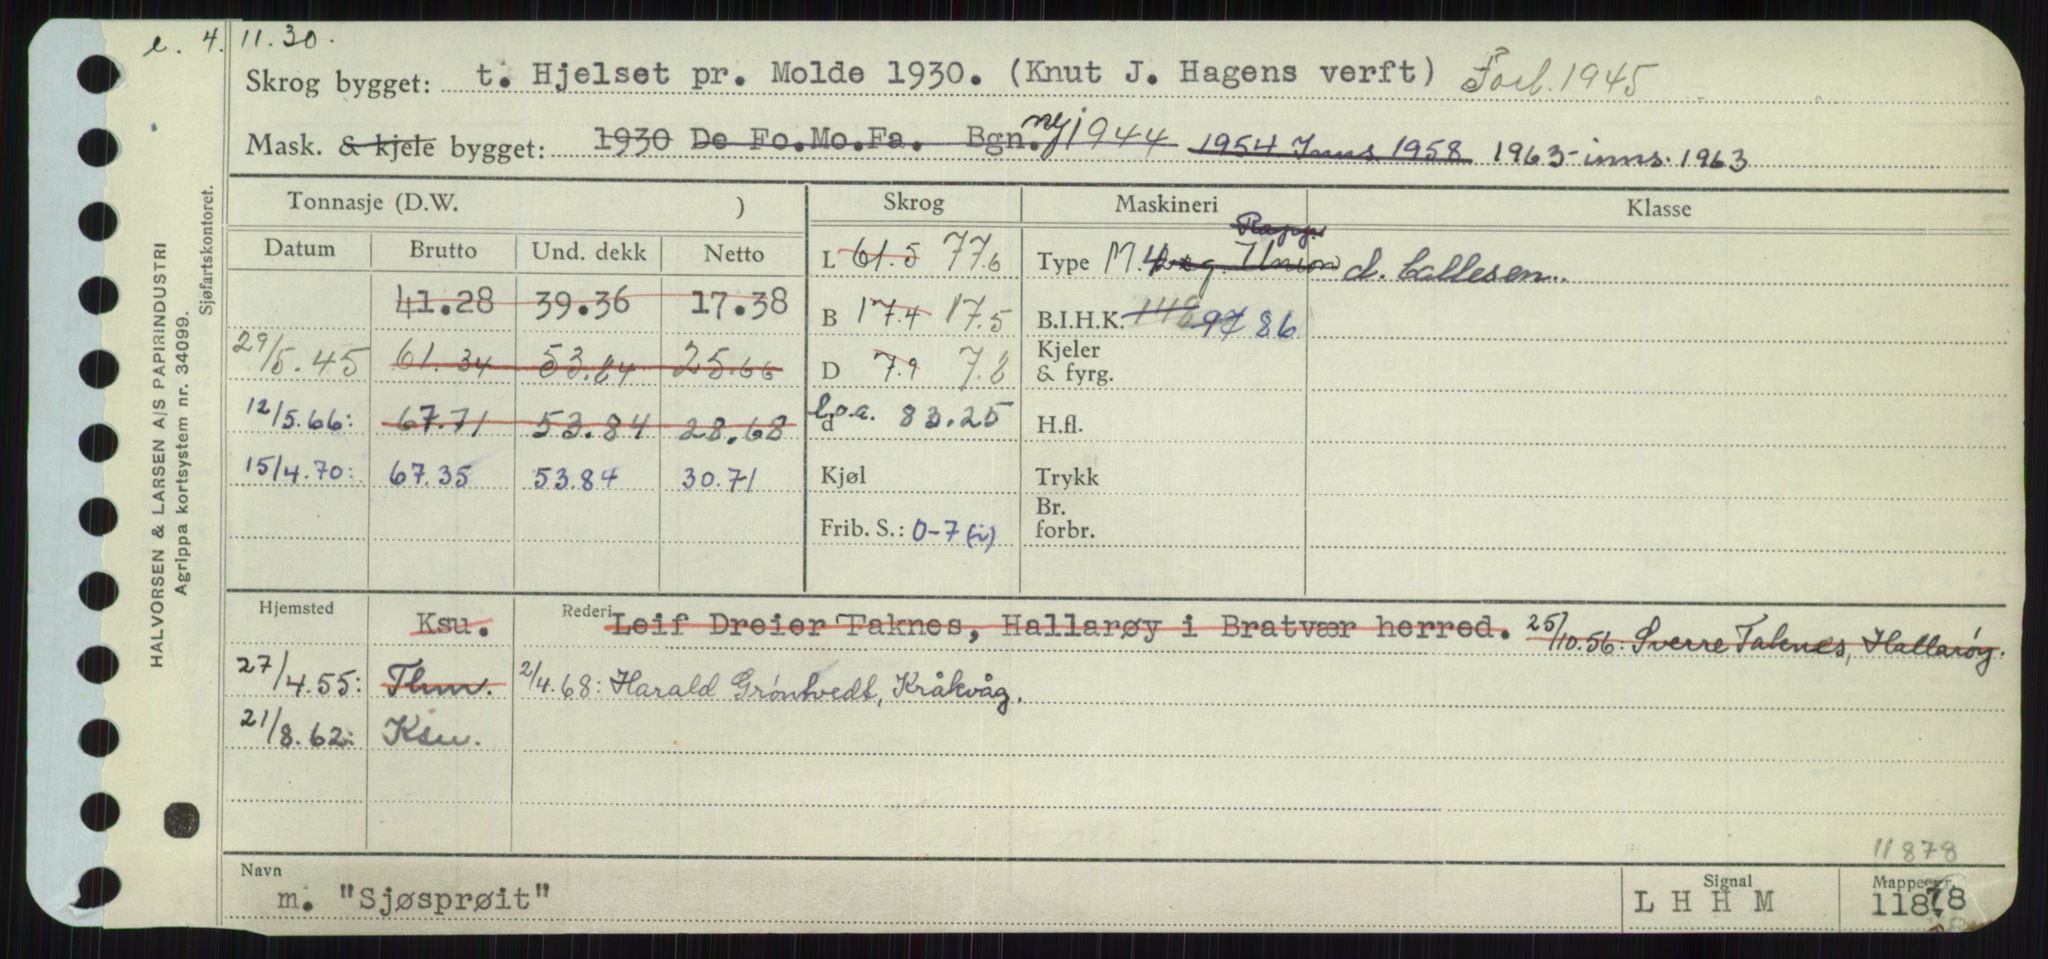 e. 4. 11.30.
Skrog bygget: t. Hjelset pr. Molde 1930. (Knut J. Hagens verft) Forl. 1945
Mask. & kjele bygget: 1930 De Fo.Mo.Fa. Bgn. ny 1944 1954 Inns 1958 1963 - inns. 1963
Tonnasje (D.W. ) Skrog Maskineri Klasse
Datum Brutto Und. dekk Netto
L 61.5 77.6 Type M. Union d. Callesen.
41.28 39.36 17.38
B 17.4 17.5 B.I.H.K. 97 86
29/5.45 61.34 53.84 25.66
D 7.9 7.8 Kjeler & fyrg.
12/5.66: 67.71 53.84 28.68
d l.o.a. 83.25 H.fl.
15/4.70: 67.35 53.84 30.71
Kjøl Trykk
Frib. S.: 0-7 (i) Br. forbr.
Hjemsted Ksu. Rederi Leif Dreier Taknes, Hallarøy i Bratvær herred. 25/10.56: Sverre Taknes, Hallarøy.
27/4.55: Thm. 2/4.68: Harald Grøntvedt, Kråkvåg.
21/8.62: Ksu.
11878
Navn Signal Mappenr.
m. "Sjøsprøit" L H H M 11878
HALVORSEN & LARSEN A/S PAPIRINDUSTRI
Agrippa kortsystem nr. 34099.
Sjøfartskontoret.